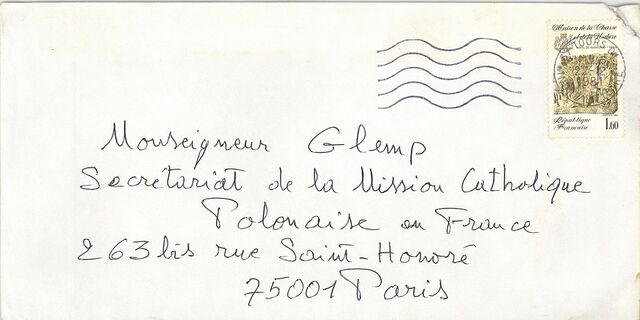 Maison de la Chasse
et de la Nature
TOURS
République
Française
1.60
Monseigneur Glemp
Secrétariat de la Mission Catholique
Polonaise en France
263 bis rue Saint-Honoré
75001 Paris